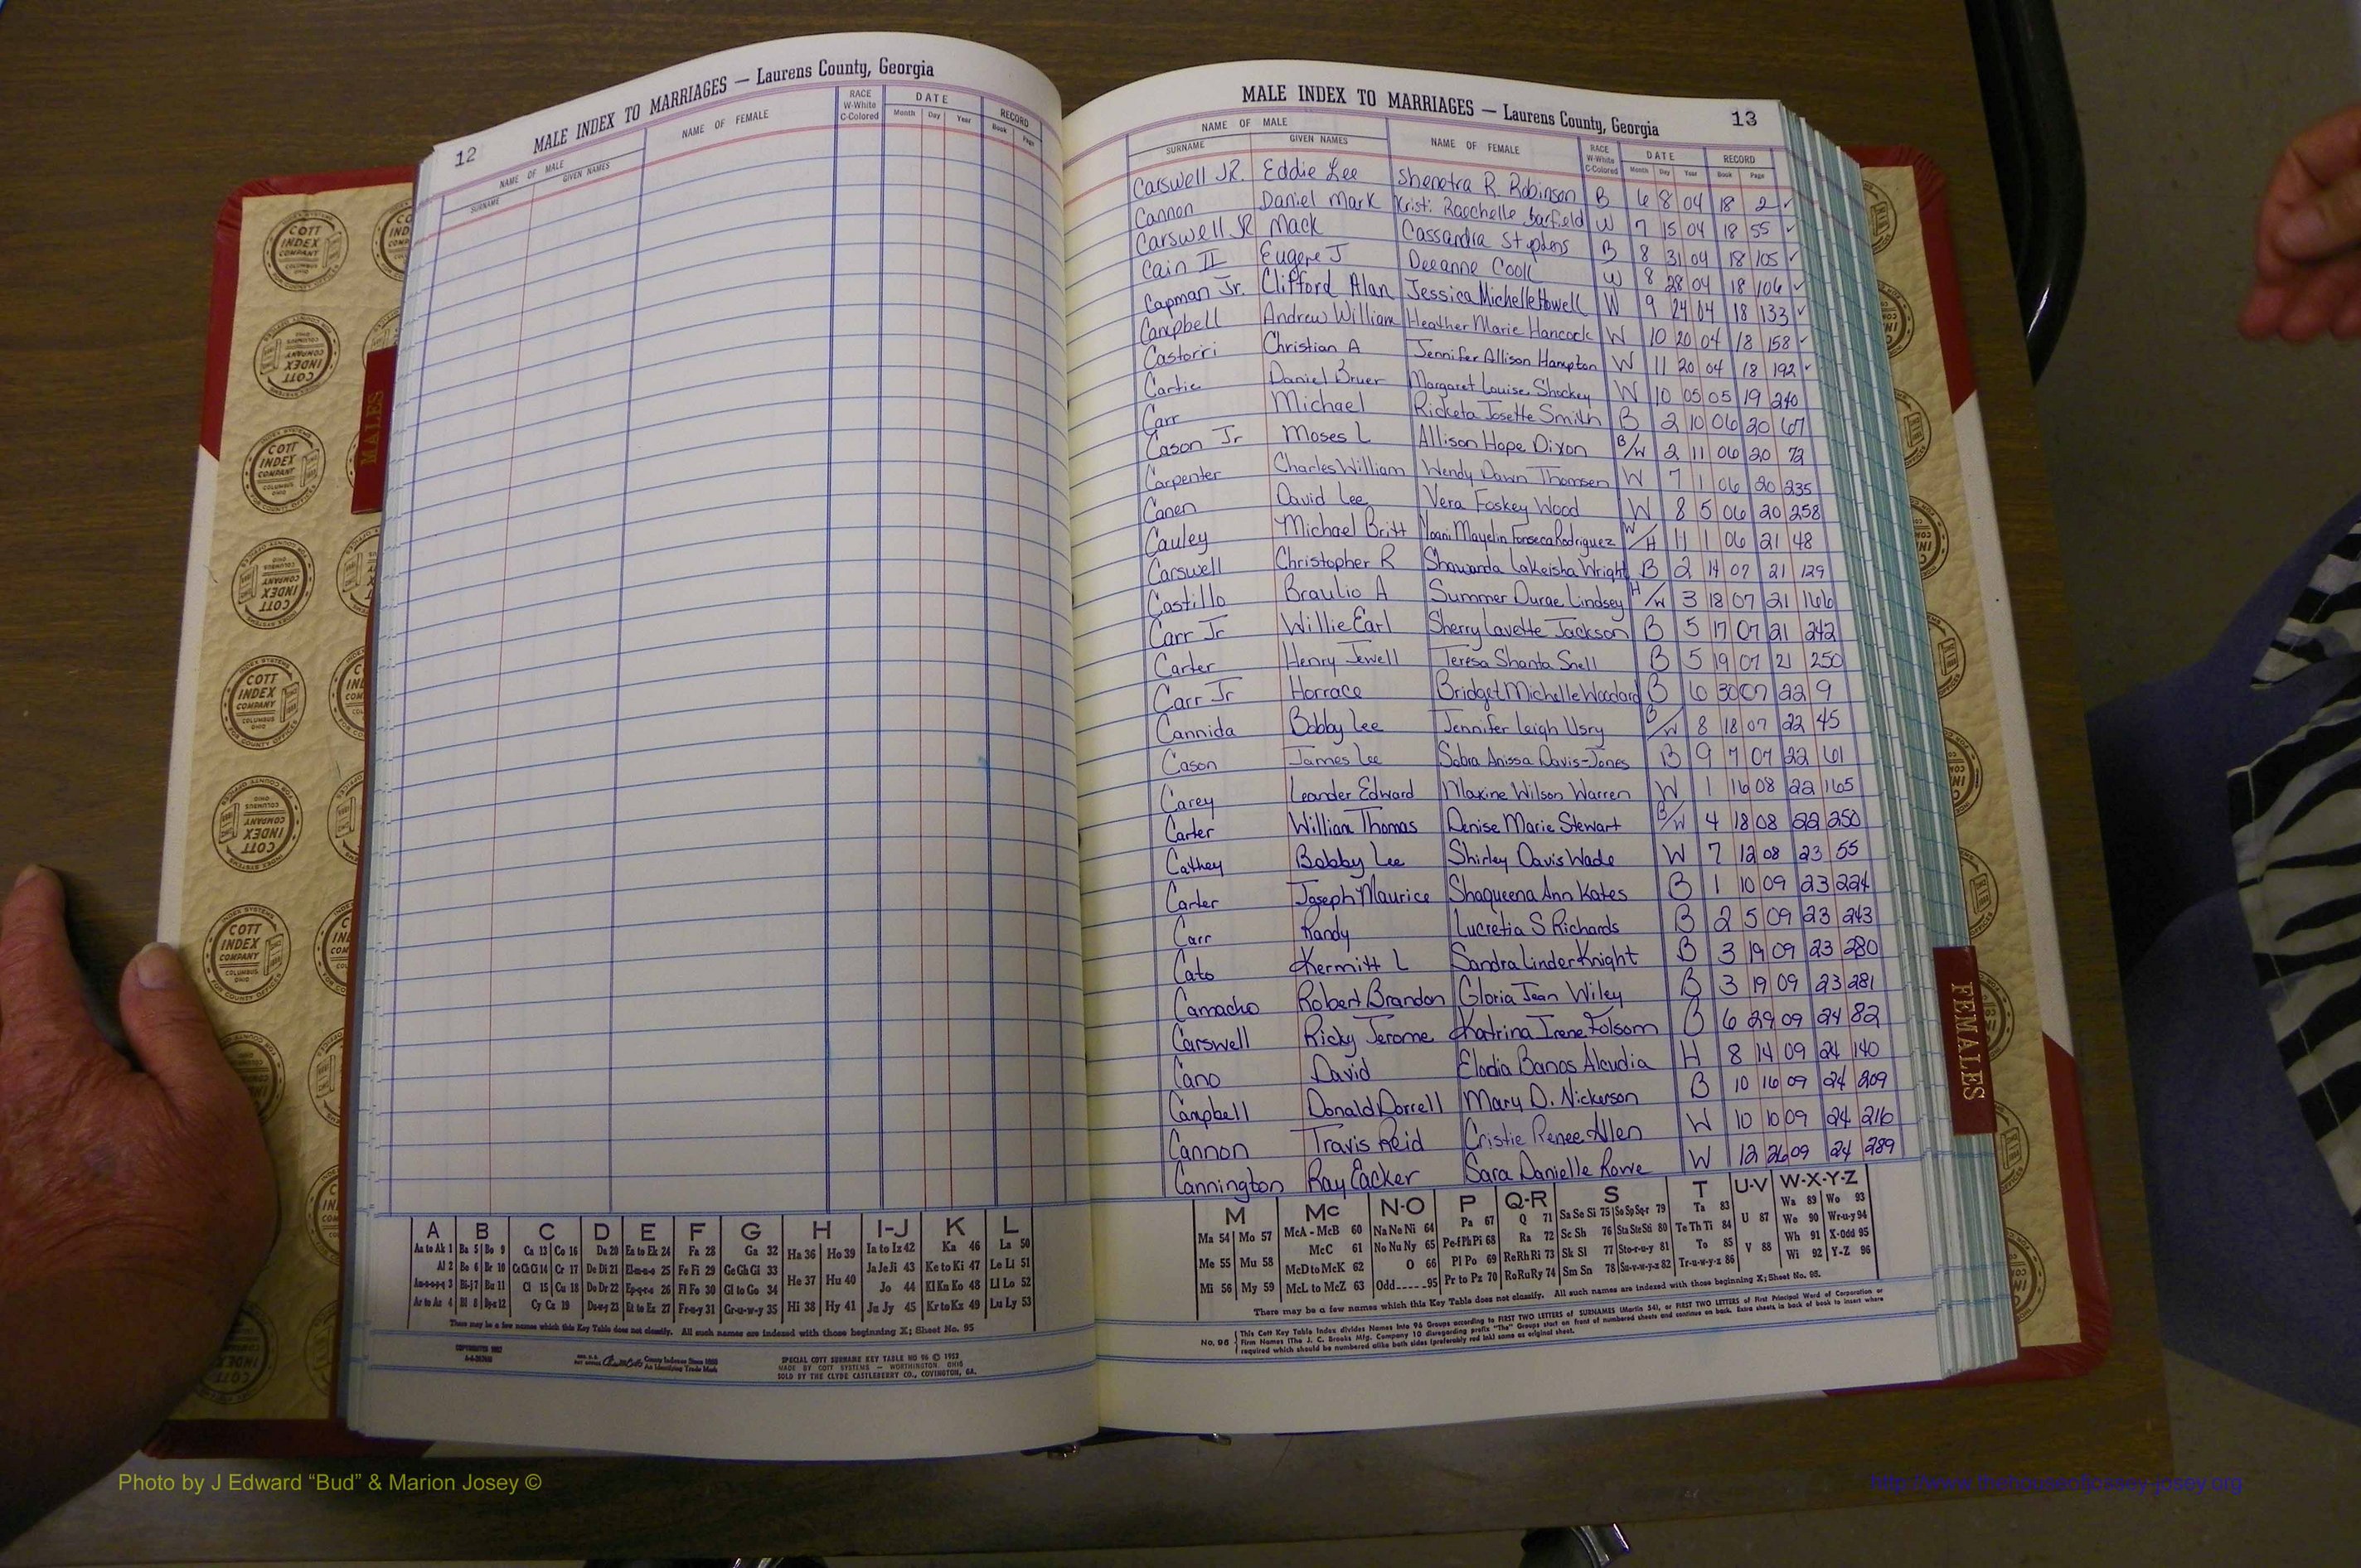 12
MALE INDEX TO MARRIAGES — Laurens County, Georgia
NAME OF MALE
SURNAME
GIVEN NAMES
NAME OF FEMALE
RACE
W-White
C-Colored
DATE
Month Day Year
RECORD
Book Page
MALE INDEX TO MARRIAGES — Laurens County, Georgia
13
NAME OF MALE
SURNAME
GIVEN NAMES
NAME OF FEMALE
RACE
W-White
C-Colored
DATE
Month Day Year
RECORD
Book Page
Carswell JR. Eddie Lee Shenetra R. Robinson B 6 8 04 18 2 ✓
Cannon Daniel Mark Kristi Raechelle Barfield W 7 15 04 18 55 ✓
Carswell JR Mack Cassandra Stephens B 8 31 04 18 105 ✓
Cain II Eugene J Deeanne Cook W 8 28 04 18 106 ✓
Capman Jr. Clifford Alan Jessica Michelle Howell W 9 24 04 18 133 ✓
Campbell Andrew William Heather Marie Hancock W 10 20 04 18 158 ✓
Castorri Christian A Jennifer Allison Hampton W 11 20 04 18 192 ✓
Cartie Daniel Bruer Margaret Louise Shockey W 10 05 05 19 240
Carr Michael Ricketa Josette Smith B 2 10 06 20 67
Cason Jr Moses L Allison Hope Dixon B/W 2 11 06 20 72
Carpenter Charles William Wendy Dawn Thomsen W 7 1 06 20 235
Canen David Lee Vera Foskey Wood W 8 5 06 20 258
Cauley Michael Britt Yoani Mayelin Fonseca Rodriguez W/H 11 1 06 21 48
Carswell Christopher R Shawanda Lakeisha Wright B 2 14 07 21 129
Castillo Braulio A Summer Durae Lindsey H/W 3 18 07 21 166
Carr Jr Willie Earl Sherry Lavette Jackson B 5 17 07 21 242
Carter Henry Jewell Teresa Shanta Snell B 5 19 07 21 250
Carr Jr Horrace Bridget Michelle Woodard B 6 30 07 22 9
Cannida Bobby Lee Jennifer Leigh Usry B/W 8 18 07 22 45
Cason James Lee Sabra Anissa Davis-Jones B 9 7 07 22 61
Carey Leander Edward Maxine Wilson Warren W 1 16 08 22 165
Carter William Thomas Denise Marie Stewart B/W 4 18 08 22 250
Cathey Bobby Lee Shirley Davis Wade W 7 12 08 23 55
Carter Joseph Maurice Shaqueena Ann Kates B 1 10 09 23 224
Carr Randy Lucretia S Richards B 2 5 09 23 243
Cato Kermitt L Sandra Linder Knight B 3 19 09 23 280
Camacho Robert Brandon Gloria Jean Wiley B 3 19 09 23 281
Carswell Ricky Jerome Katrina Irene Folsom B 6 29 09 24 82
Cano David Elodia Banos Alcudia H 8 14 09 24 140
Campbell Donald Dorrell Mary D. Nickerson B 10 16 09 24 209
Cannon Travis Reid Cristie Renee Allen W 10 10 09 24 216
Cannington Ray Eacker Sara Danielle Rowe W 12 26 09 24 289
A B C D E F G H I-J K L
Aa to Ak 1 Ba 5 Bo 9 Ca 13 Co 16 Da 20 Ea to Ek 24 Fa 28 Ga 32 Ha 36 Ho 39 Ia to Iz 42 Ka 46 La 50
Al 2 Be 6 Br 10 Ce Ch Ci 14 Cr 17 De Di 21 El-m-n-o 25 Fe Fi 29 Ge Gh Gi 33 He 37 Hu 40 Ja Je Ji 43 Ke to Ki 47 Le Li 51
3 Bi-j 7 Bu 11 Cl 15 Cu 18 Do Dr 22 Ep-q-r-s 26 Fl Fo 30 Gl to Go 34 Jo 44 Kl Kn Ko 48 Ll Lo 52
Ar to Az 4 Bl 8 12 Cy Cz 19 Du-w-y 23 Et to Ez 27 Fr-u-y 31 Gr-u-w-y 35 Hi 38 Hy 41 Ju Jy 45 Kr to Kz 49 Lu Ly 53
There may be a few names which this Key Table does not classify. All such names are indexed with those beginning X; Sheet No. 95
COPYRIGHTED 1952
County Indexes Since 1888
An Identifying Trade Mark
SPECIAL COTT SURNAME KEY TABLE NO 96 © 1952
MADE BY COTT SYSTEMS — WORTHINGTON, OHIO
SOLD BY THE CLYDE CASTLEBERRY CO., COVINGTON, GA.
M Mc N-O P Q-R S T U-V W-X-Y-Z
Ma 54 Mo 57 McA - McB 60 Na Ne Ni 64 Pa 67 Q 71 Sa Se Si 75 So Sp Sq-r 79 Ta 83 U 87 Wa 89 Wo 93
Me 55 Mu 58 McC 61 No Nu Ny 65 Pe-f Ph Pi 68 Ra 72 Sc Sh 76 Sta Ste Sti 80 Te Th Ti 84 We 90 Wr-u-y 94
McD to McK 62 O 66 Pl Po 69 Re Rh Ri 73 Sk Sl 77 Sto-r-u-y 81 To 85 V 88 Wh 91 X-Odd 95
Mi 56 My 59 McL to McZ 63 Odd 95 Pr to Pz 70 Ro Ru Ry 74 Sm Sn 78 Su-v-w-y-z 82 Tr-u-w-y-z 86 Wi 92 Y-Z 96
There may be a few names which this Key Table does not classify. All such names are indexed with those beginning X; Sheet No. 95.
No. 96 This Cott Key Table Index divides Names into 96 Groups according to FIRST TWO LETTERS of SURNAMES (Martin 54), or FIRST TWO LETTERS of First Principal Word of Corporation or
Firm Names (The J. C. Brooks Mfg. Company 10 disregarding prefix "The" Groups start on front of numbered sheets and continue on back. Extra sheets in back of book to insert where
required which should be numbered alike both sides (preferably red ink) same as original sheet.
MALES
FEMALES
INDEX SYSTEMS
COTT
INDEX
COMPANY
COLUMBUS
OHIO
FOR COUNTY OFFICES
Photo by J Edward “Bud” & Marion Josey ©
http://www.thehouseofjossey-josey.org